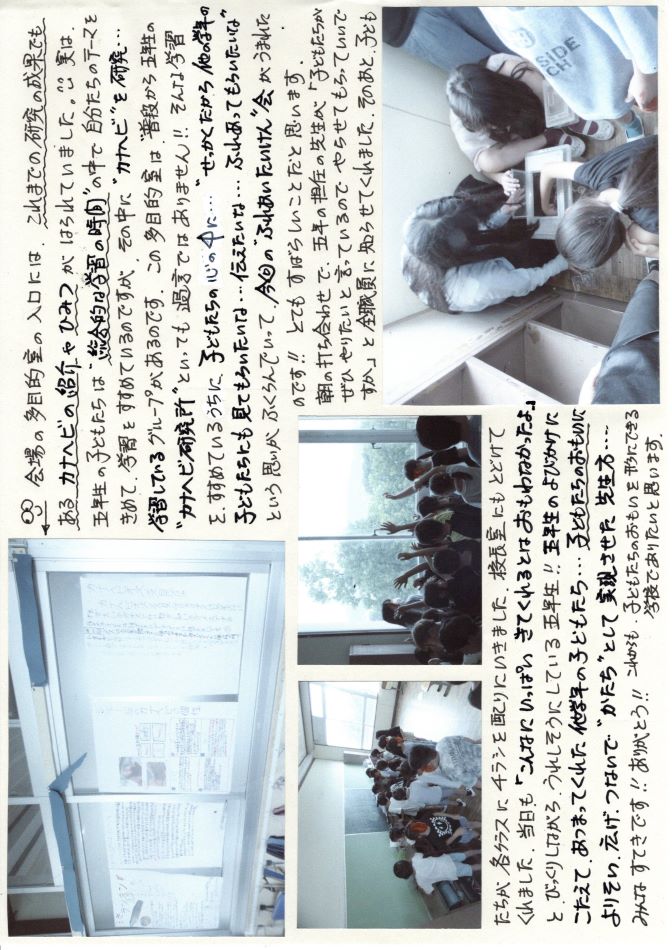 会場の多目的室の入口には、これまでの研究の成果でも
ある カナヘビの紹介やひみつ がはられていました。実は、
五年生の子どもたちは"総合的な学習の時間"の中で自分たちのテーマを
きめて、学習をすすめているのですが、その中に"カナヘビ"を研究…
学習しているグループがあるのです。この多目的室は、普段から五年生の
"カナヘビ研究所"といっても過言ではありません!! そんな学習
を、すすめているうちに、子どもたちの心の中に…"せっかくだから他の学年の
子どもたちにも見てもらいたいな…伝えたいな… ふれあってもらいたいな"
という思いが、ふくらんでいって、今回の"ふれあいたいけん"会がうまれた
のです!! とてもすばらしいことだと思います。
朝の打ち合わせで、五年の担任の先生が「子どもたちが
ぜひやりたいと言っているので、やらせてもらっていいで
すか」と全職員に知らせてくれました。そのあと、子ども
たちが各クラスにチラシを配りにいきました。校長室にもとどけて
くれました。当日も「こんなにいっぱいきてくれるとはおもわなかったよ。」
と、びっくりしながら、うれしそうにしている五年生!! 五年生のよびかけに
こたえて、あつまってくれた他学年の子どもたち… 子どもたちのおもいに
よりそい、広げ、つないで"かたち"として実現させた先生方…
みんなすてきです!! ありがとう!! これからも、子どもたちのおもいを形にできる
学校でありたいと思います。
SiDE
CH